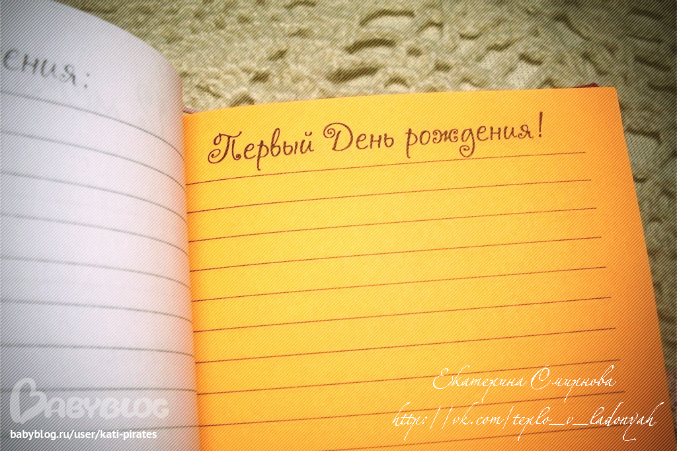 ения:
Первый День рождения!
Екатерина Смирнова
https://vk.com/teplo_v_ladonyah
BABYBLOG
babyblog.ru/user/kati-pirates